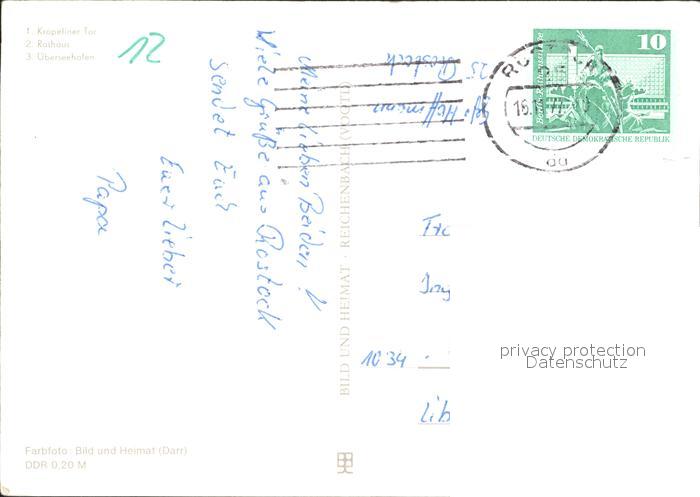 1. Kröpeliner Tor
2. Rathaus
3. Überseehafen
12
Meine lieben Beiden!
Viele Grüße aus Rostock
sendet Euch
Euer lieber
Papa
Hoffmann
25 Rostock
BILD UND HEIMAT · REICHENBACH (VOGTL)
10
DEUTSCHE DEMOKRATISCHE REPUBLIK
1034
privacy protection
Datenschutz
Farbfoto: Bild und Heimat (Darr)
DDR 0,20 M